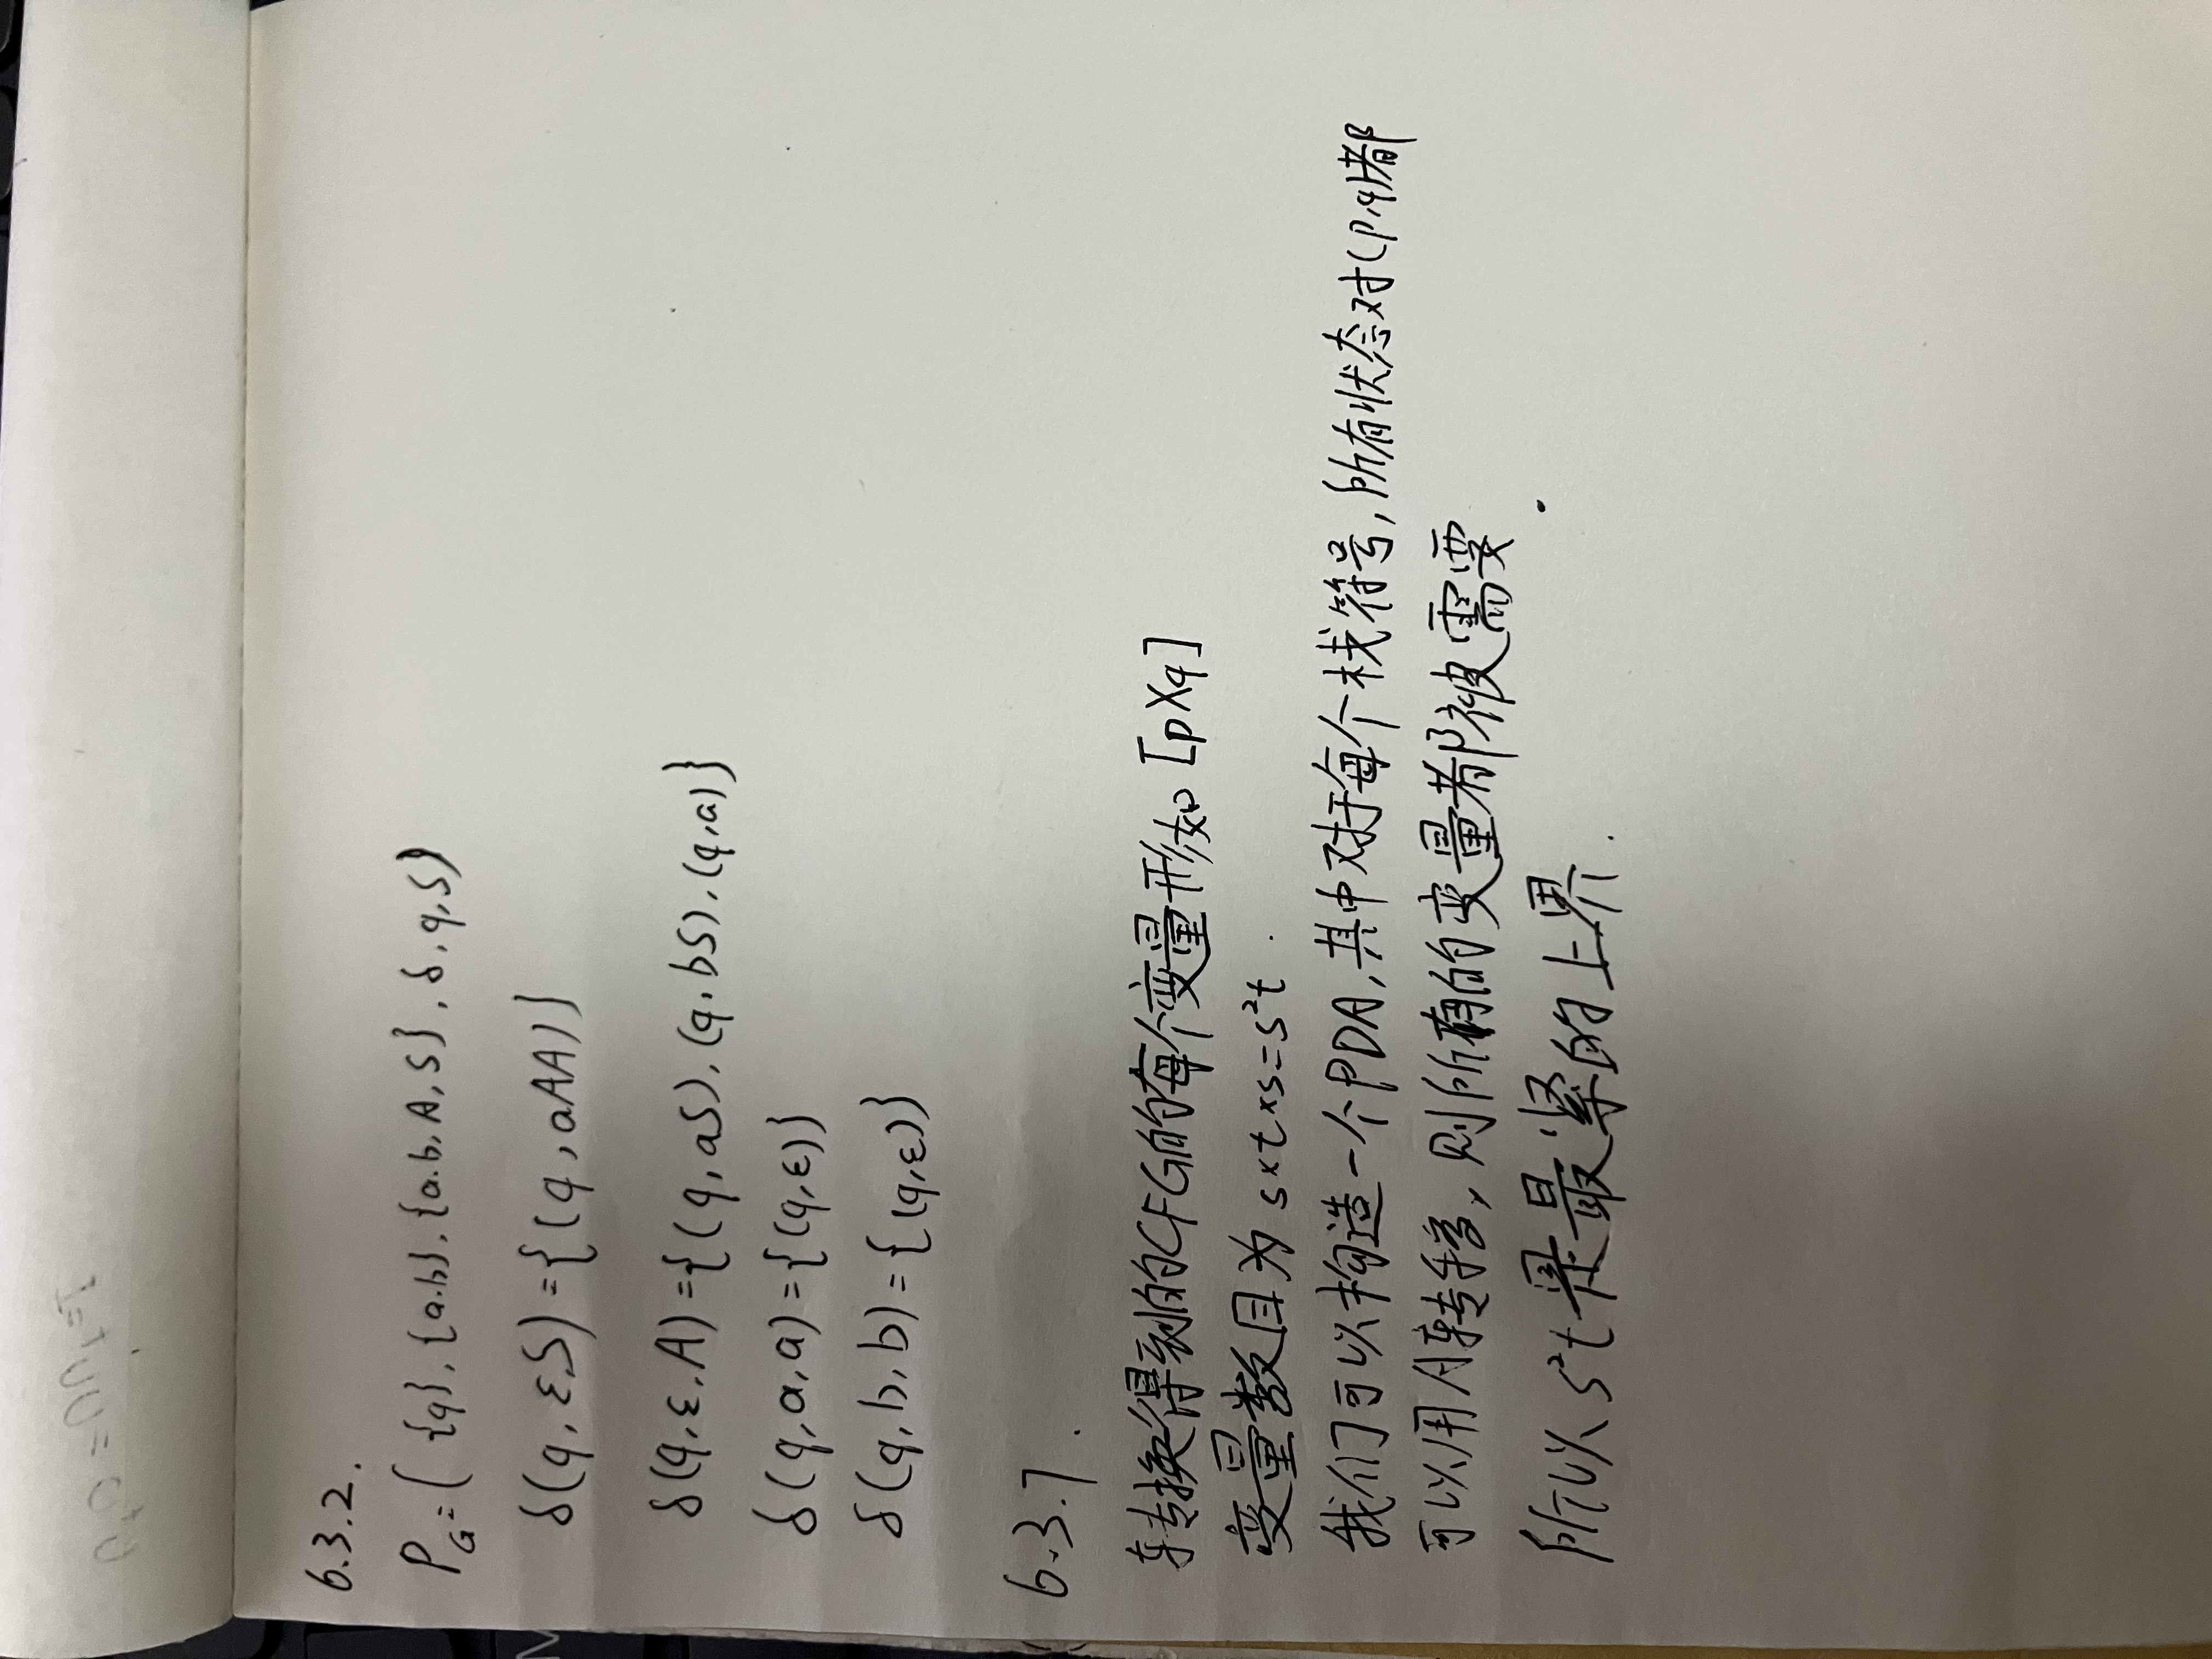 6.3.2.
P_G = ({q}, {a.b}, {a.b.A,S}, δ, q, S)
δ(q, ε, S) = {(q, aAA)}
δ(q, ε, A) = {(q, aS), (q, bS), (q, a)}
δ(q, a, a) = {(q, ε)}
δ(q, b, b) = {(q, ε)}
6.3.7.
转换得到的CFG的每个变量形如[pXq]
变量数目为 s×t×s=s²t.
我们可以构造一个PDA,其中对于每个栈符号,所有状态对(p,q)都
可以用转移,则所有的变量都被需要.
所以s²t是最紧的上界.